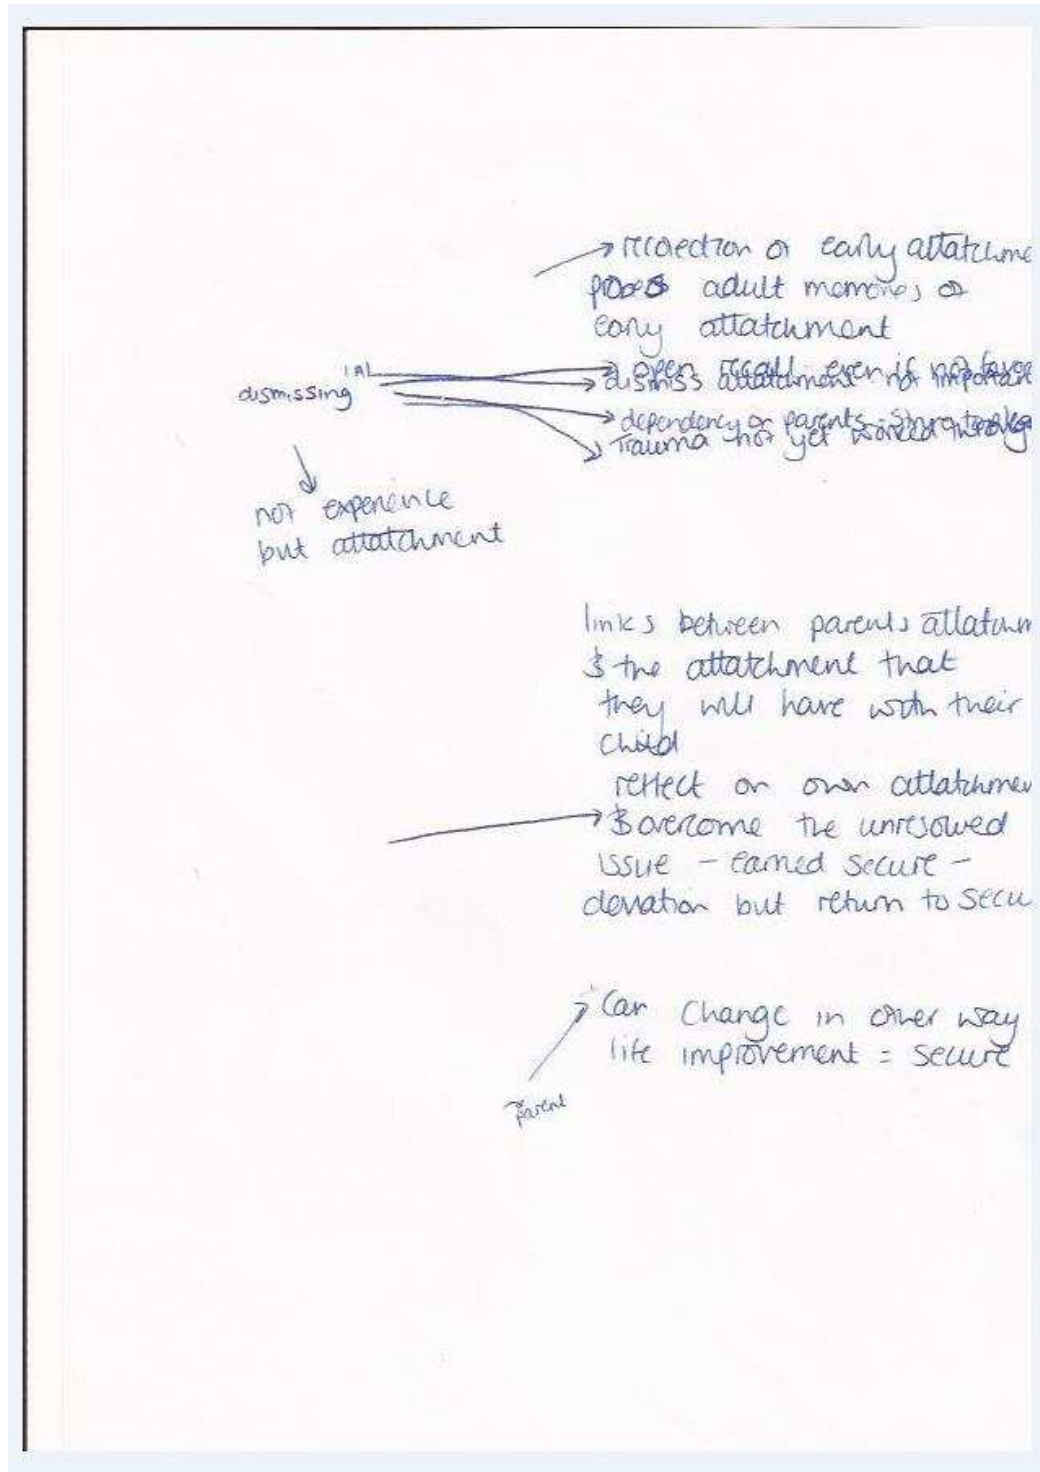 recolection of early attatchme
probes adult memories of
early attatchment
open recall even if not favo
dismissing
dismiss attatchment not important
dependency on parents
Trauma not yet worked throug
not experience
but attatchment
links between parents attatchm
& the attatchment that
they will have with their
child
reflect on own attatchmen
& overcome the unresolved
issue - earned secure -
deviation but return to secu
Can change in other way
life improvement = secure
parent